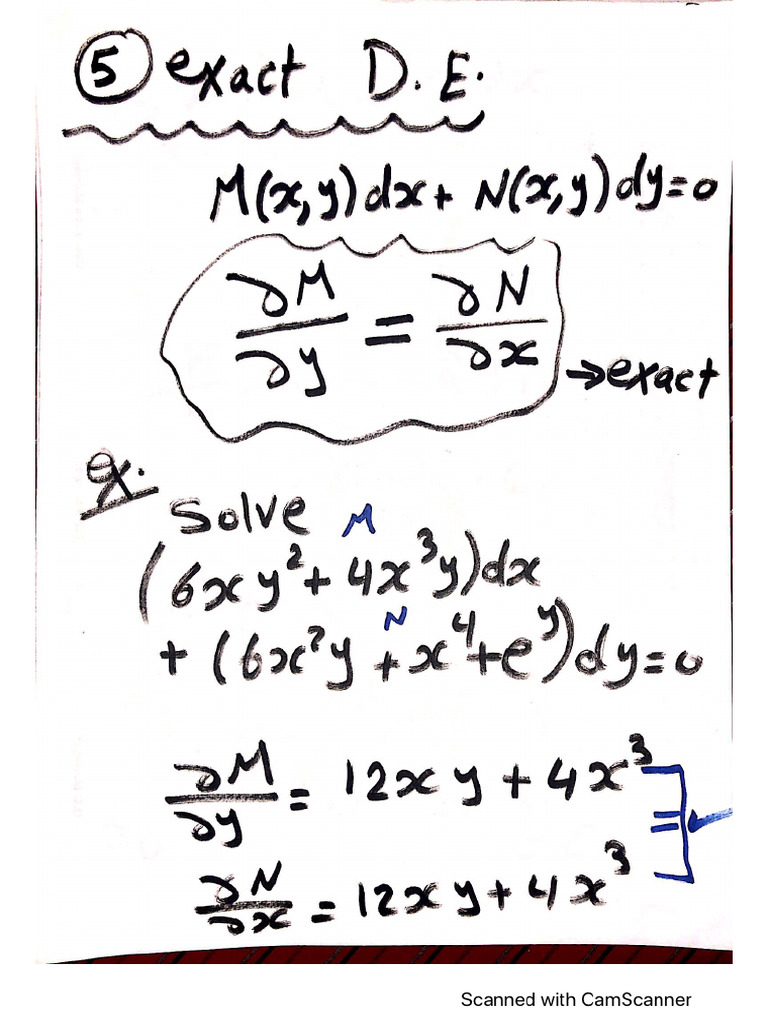 ⑤ exact D.E.
M(x,y)dx+ N(x,y)dy=0
∂M/∂y = ∂N/∂x →exact
ex.
Solve M
(6xy²+4x³y)dx
N
+(6x²y+x⁴+e^y)dy=0
∂M/∂y = 12xy+4x³
=
∂N/∂x = 12xy+4x³
Scanned with CamScanner